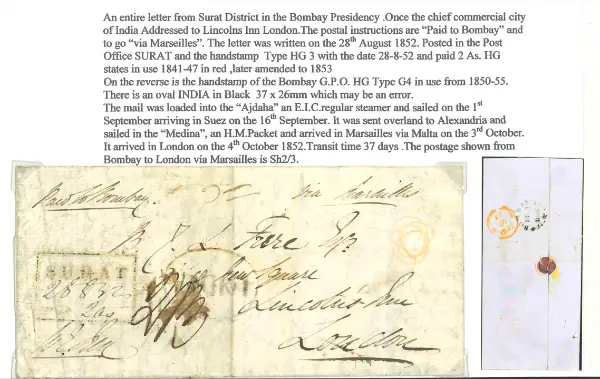 An entire letter from Surat District in the Bombay Presidency .Once the chief commercial city
of India Addressed to Lincolns Inn London.The postal instructions are “Paid to Bombay” and
to go “via Marseilles”. The letter was written on the 28th August 1852. Posted in the Post
Office SURAT and the handstamp  Type HG 3 with the date 28-8-52 and paid 2 As. HG
states in use 1841-47 in red ,later amended to 1853
On the reverse is the handstamp of the Bombay G.P.O. HG Type G4 in use from 1850-55.
There is an oval INDIA in Black  37 x 26mm which may be an error.
The mail was loaded into the “Ajdaha” an E.I.C.regular steamer and sailed on the 1st
September arriving in Suez on the 16th September. It was sent overland to Alexandria and
sailed in the “Medina”, an H.M.Packet and arrived in Marsailles via Malta on the 3rd October.
It arrived in London on the 4th October 1852.Transit time 37 days .The postage shown from
Bombay to London via Marsailles is Sh2/3.
Paid to Bombay
via Marseilles
Esq
SURAT
New Square
28 8 52
2/3
Lincoln's Inn
London